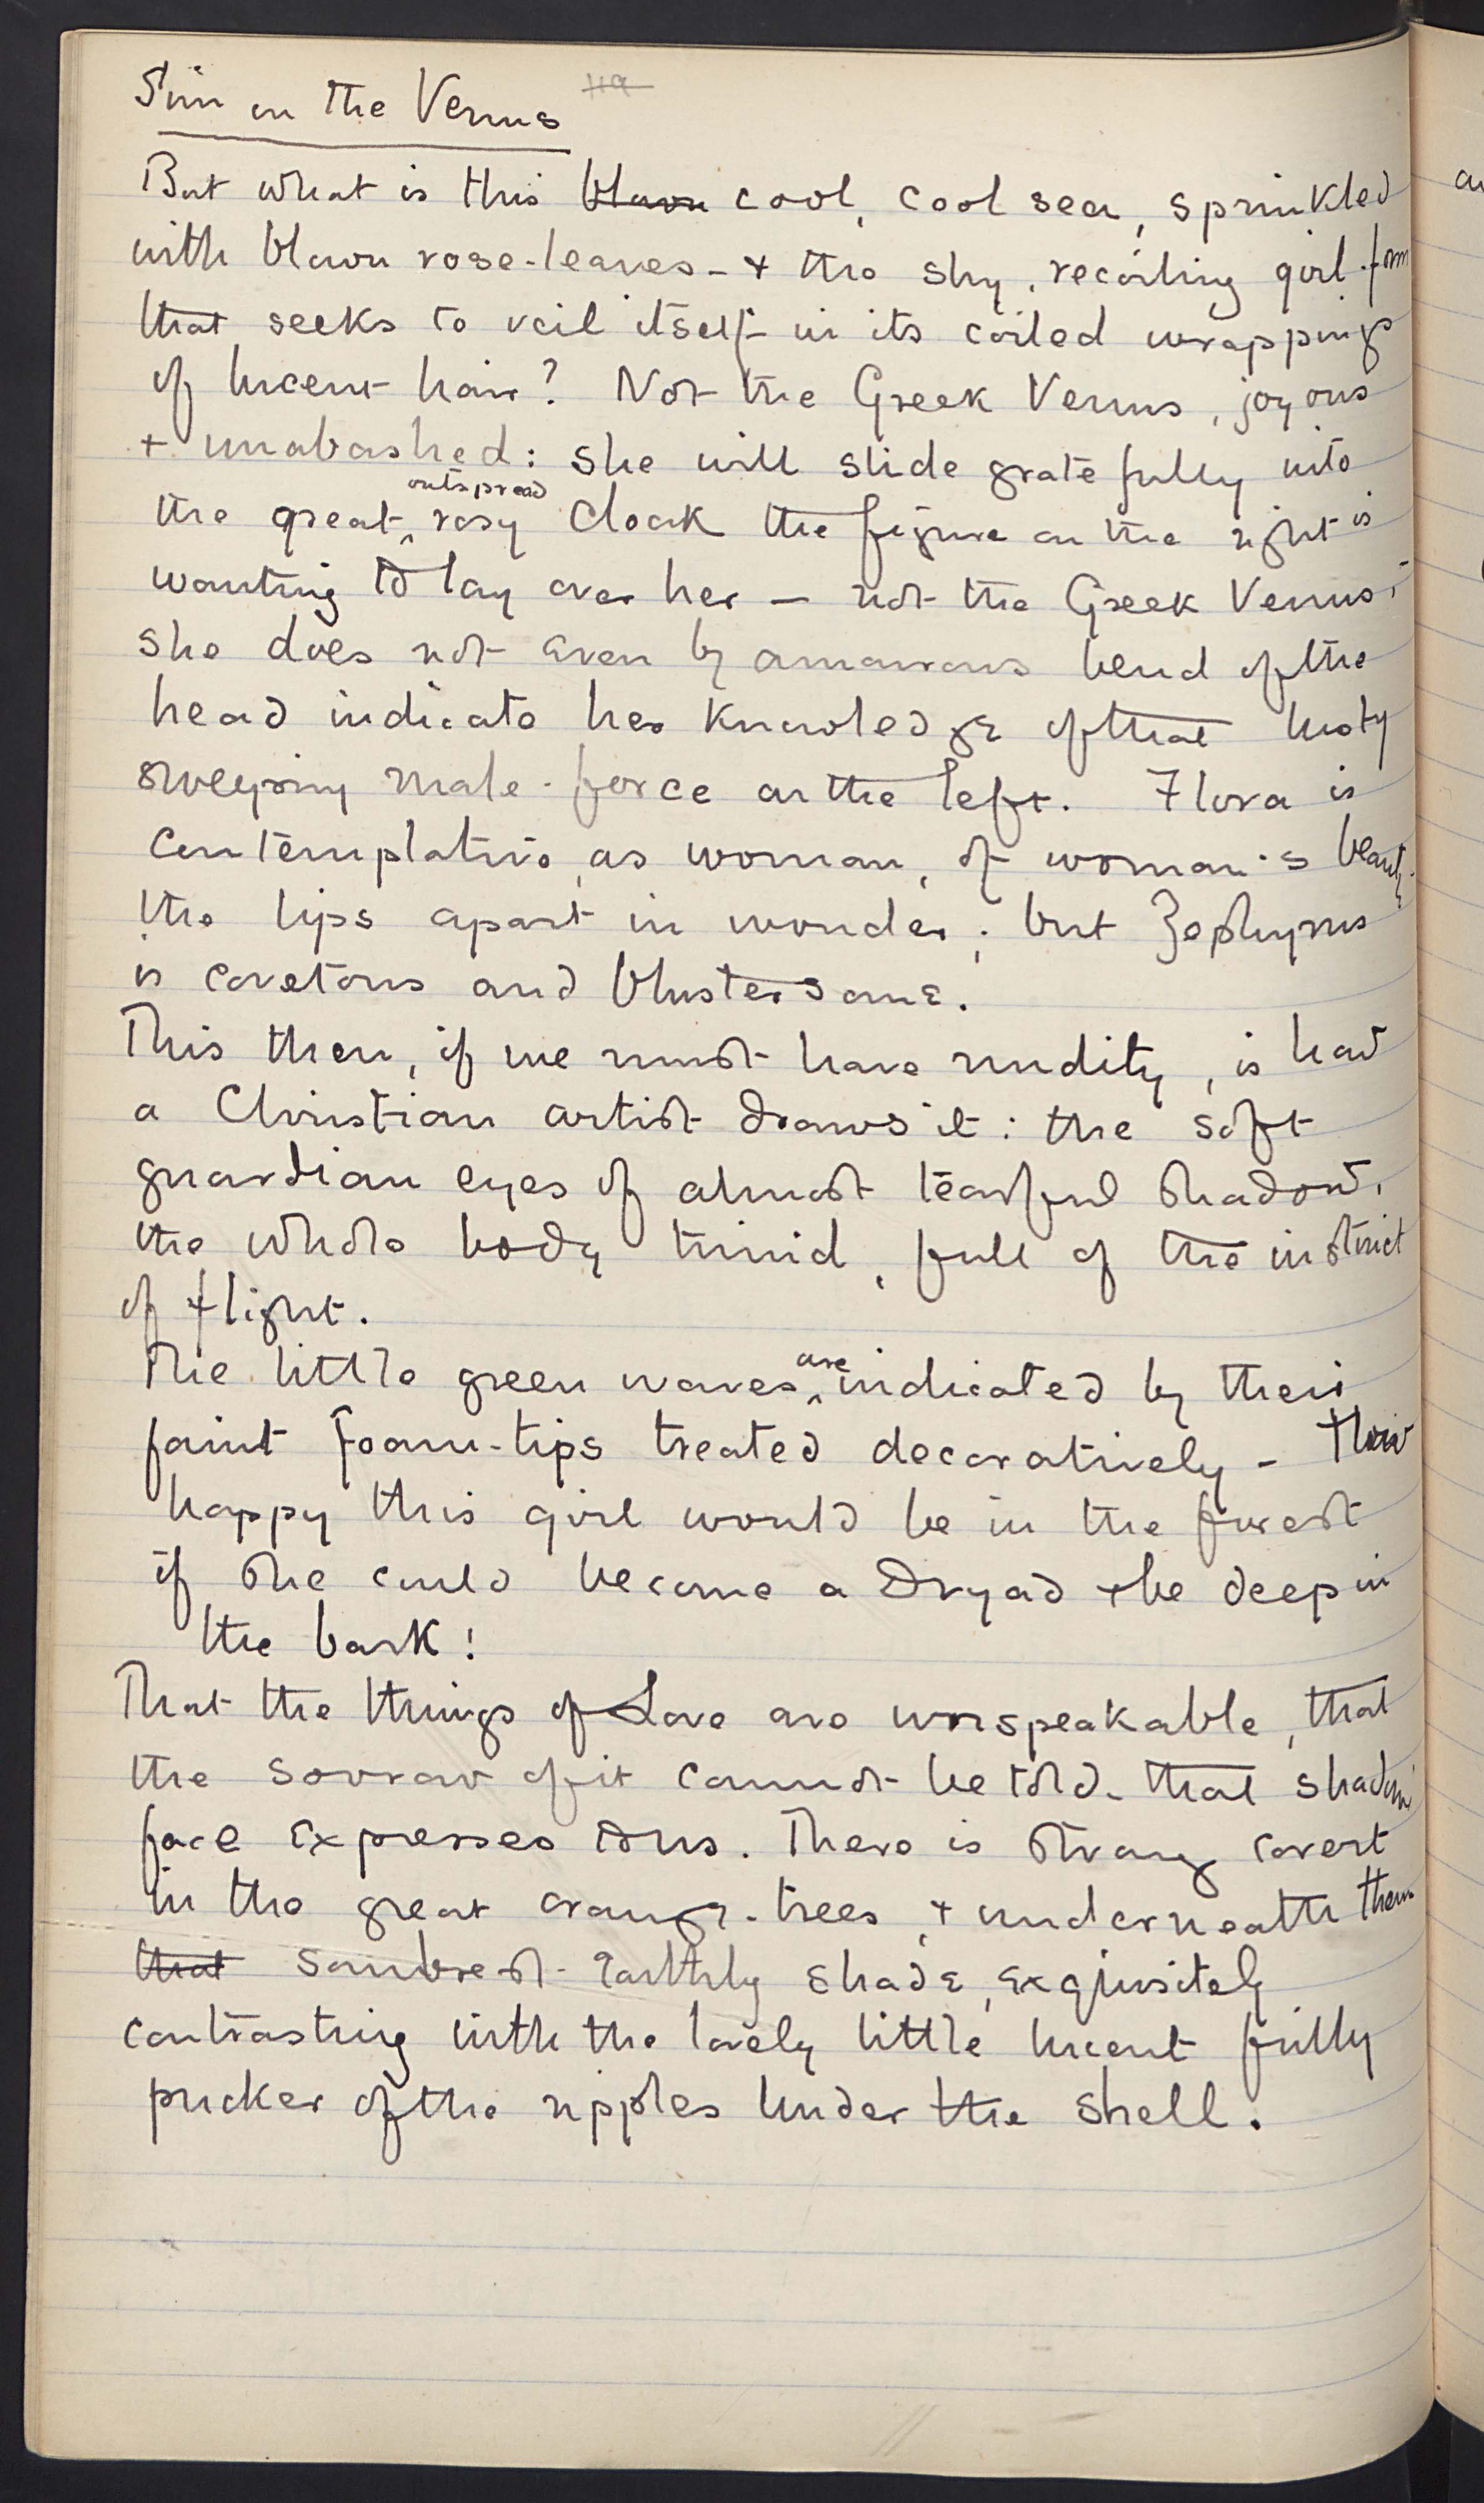 Sim on the Venus
But what is this blown cool, cool sea, sprinkled
with blown rose-leaves - + the shy, recoiling girl-form
that seeks to veil itself in its coiled wrappings
of lucent hair? Not the Greek Venus, joyous
+ unabashed: she will slide gratefully into
the great, outspread rosy cloak the figure on the right is
wanting to lay over her — not the Greek Venus;
she does not even by amorous bend of the
head indicate her knowledge of that lusty
sweeping male-force on the left. Flora is
contemplative, as woman, of woman's beauty -
the lips apart in wonder; but Zephyrus
is covetous and blustersome.
This then, if we must have nudity, is how
a Christian artist draws it: the soft
guardian eyes of almost tearful shadow,
the whole body timid, full of the instinct
of flight.
The little green waves are indicated by their
faint foam-tips treated decoratively - How
happy this girl would be in the forest
if she could become a Dryad + be deep in
the bark!
That the things of Love are unspeakable, that
the sorrow of it cannot be told - that shadowy
face expresses to us. There is strong covert
in the great orange-trees, + underneath them
that sombrest earthly shade, exquisitely
contrasting with the lovely little lucent frilly
pucker of the ripples under the shell.